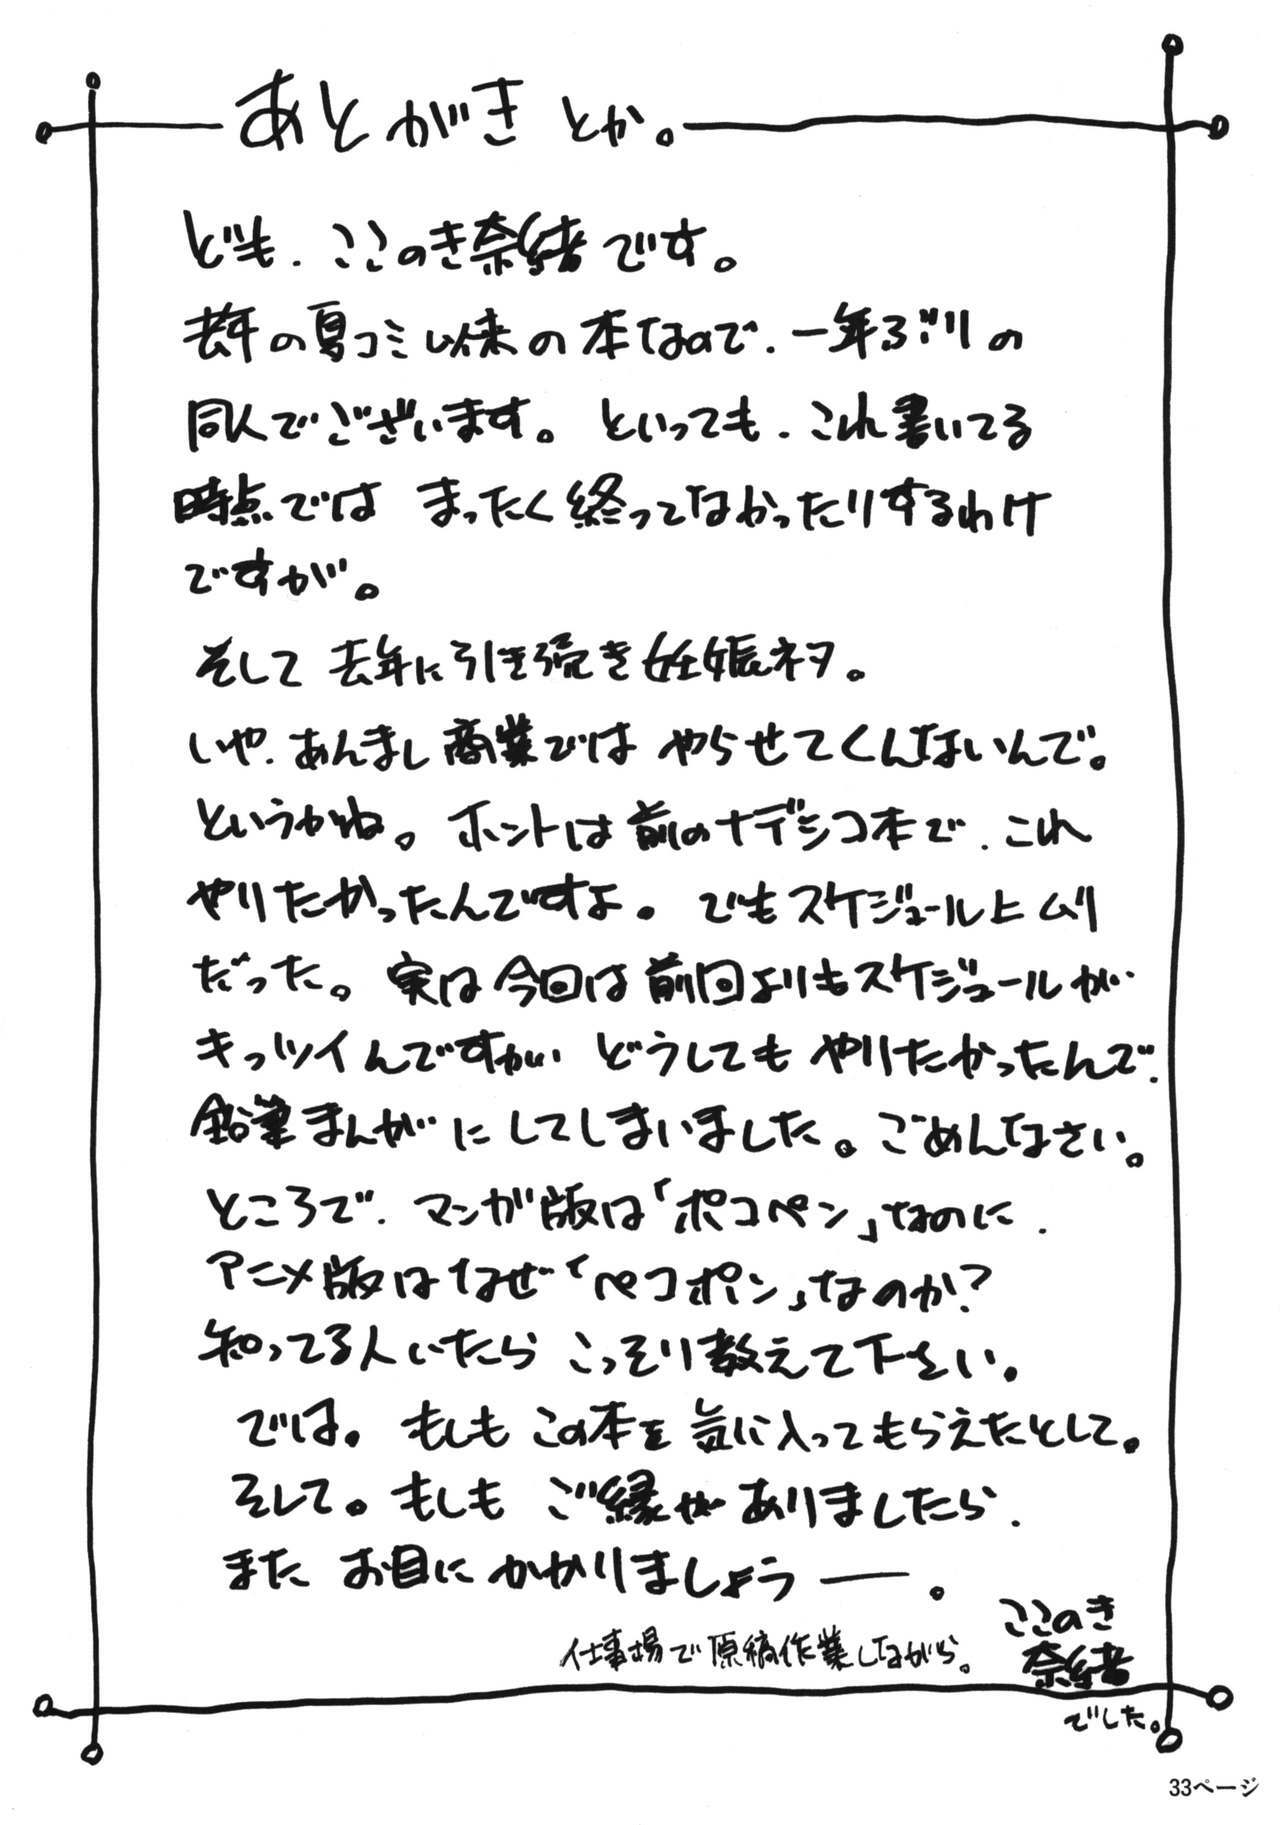 あとがきとか。
ども、ここのき奈緒です。
去年の夏コミ以来の本なので、一年ぶりの
同人でございます。といっても、これ書いてる
時点では まったく終ってなかったりするわけ
ですが。
そして去年に引き続き妊娠ネタ。
いや、あんまし商業では やらせてくんないんで。
というかね。ホントは前のナデシコ本で、これ
やりたかったんですよ。でもスケジュール上ムリ
だった。実は今回は前回よりもスケジュールが
キッツイんですがどうしてもやりたかったんで、
鉛筆まんがにしてしまいました。ごめんなさい。
ところで、マンガ版は「ポコペン」なのに、
アニメ版はなぜ「ペコポン」なのか?
知ってる人いたら こっそり教えて下さい。
では。もしもこの本を気に入ってもらえたとして。
そして。もしも ご縁がありましたら、
また お目にかかりましょう——。
仕事場で原稿作業しながら。
ここのき
奈緒
でした。
33ページ